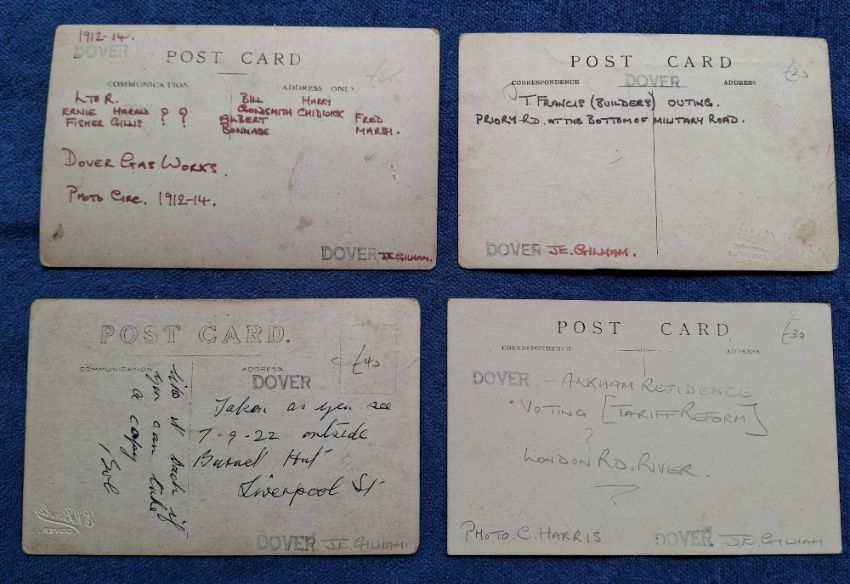 1912-14.
DOVER
POST CARD
COMMUNICATION
ADDRESS ONLY
L TO R.
ERNIE HARALD ? ?
FISHER GILLIS
BILL HARRY
GOLDSMITH CHIDWICK
ALBERT FRED
BONNAGE MARSH.
DOVER GAS WORKS.
PHOTO CIRC. 1912-14.
DOVER J.E. GILHAM.
POST CARD
£20
CORRESPONDENCE
DOVER
ADDRESS
J.T. FRANCIS (BUILDERS) OUTING.
PRIORY RD. AT THE BOTTOM OF MILITARY ROAD.
DOVER J.E. GILHAM.
POST CARD.
COMMUNICATION
ADDRESS
£40
DOVER
Taken as you see
7-9-22 outside
Hut
Liverpool St
like it back if
you can take
a copy
DOVER.
DOVER J.E. GILHAM.
POST CARD
£30
CORRESPONDENCE
ADDRESS
DOVER - ARKHAM RESIDENCE
VOTING [TARIFF REFORM]
?
LONDON RD. RIVER.
?
PHOTO. C. HARRIS
DOVER J.E. GILHAM